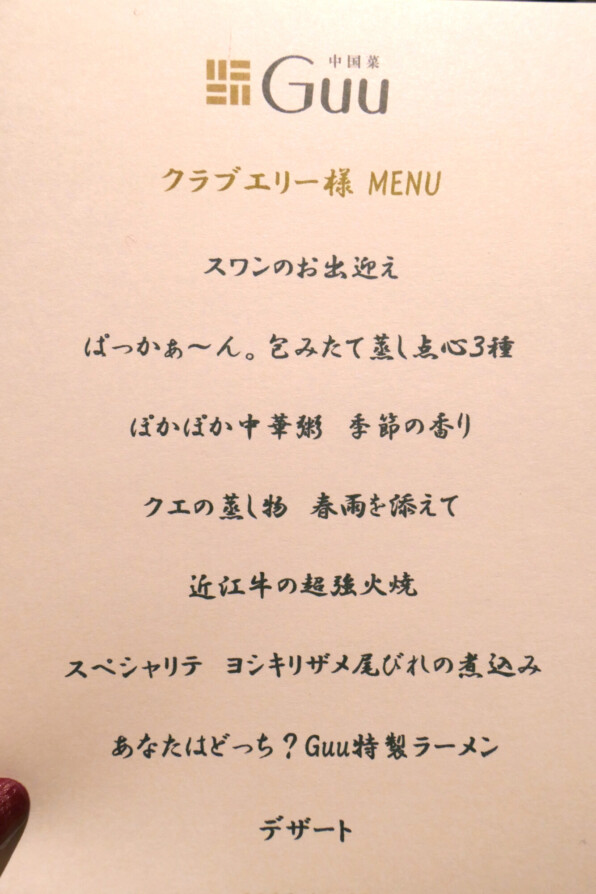 中国菜
Guu
クラブエリー様 MENU
スワンのお出迎え
ぱっかぁ〜ん。包みたて蒸し点心3種
ぽかぽか中華粥 季節の香り
クエの蒸し物 春雨を添えて
近江牛の超強火焼
スペシャリテ ヨシキリザメ尾びれの煮込み
あなたはどっち？Guu特製ラーメン
デザート